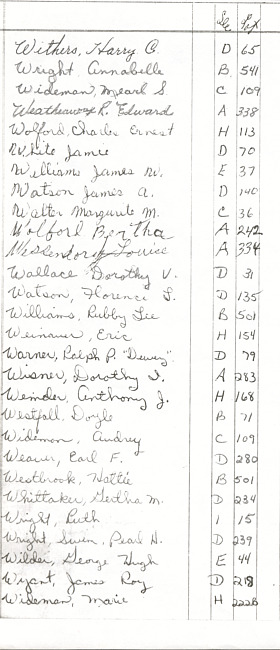 Sec Lot
Withers, Harry C. D 65
Wright Annabelle B. 541
Wideman, Mearl S C 109
Weatheawax R. Edward A 338
Wolford, Charles Ernest H 113
White Jamie D 70
Williams James W. E 37
Watson James A. D 140
Walter Marguerite M. C 36
Wolford Bertha A 242
Westendorf Louise A 334
Wallace Dorothy V. D 31
Watson, Florence S. D 135
Williams, Rubby Lee B 501
Weinauer, Eric H 154
Warner, Ralph P. "Dewey" D 79
Wisner, Dorothy A 283
Weinder, Anthony J. H 168
Westfall, Doyle B 71
Wideman, Audrey C 109
Weaver, Earl F. D 280
Westbrook, Hattie B 501
Whittaker, Gertha M. D 234
Wright, Ruth 1 15
Wright, Swen, Pearl H. D 239
Wilder, George Hugh E 44
Wyant, James Roy D 218
Wideman, Marie H 222B